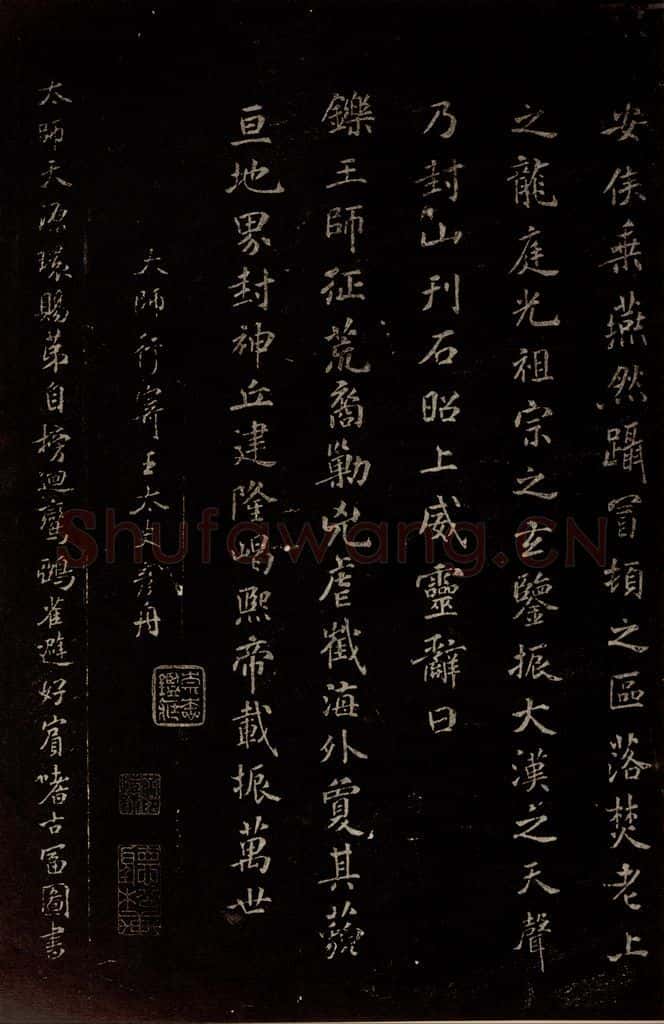 安侯乗燕然躡冒頓之區落焚老上
之龍庭光祖宗之玄鑒振大漢之天聲
乃封山刊石昭上威靈辭曰
鑠王師征荒裔勦兇虐截海外夐其藐
亘地界封神丘建隆嵑熙帝載振萬世
大師行寄王太史彥舟
太師天源環賜第自榜迴鸞鵶雀避好賓嗜古冨圖書
Shufawang.CN